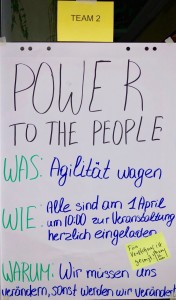 TEAM 2
POWER
TO THE PEOPLE
WAS: Agilität wagen
WIE: Alle sind am 1 April
um 10:00 zur Veranstaltung
herzlich eingeladen
Für
Verpflegung ist
gesorgt
WARUM: Wir müssen uns
verändern, sonst werden wir verändert